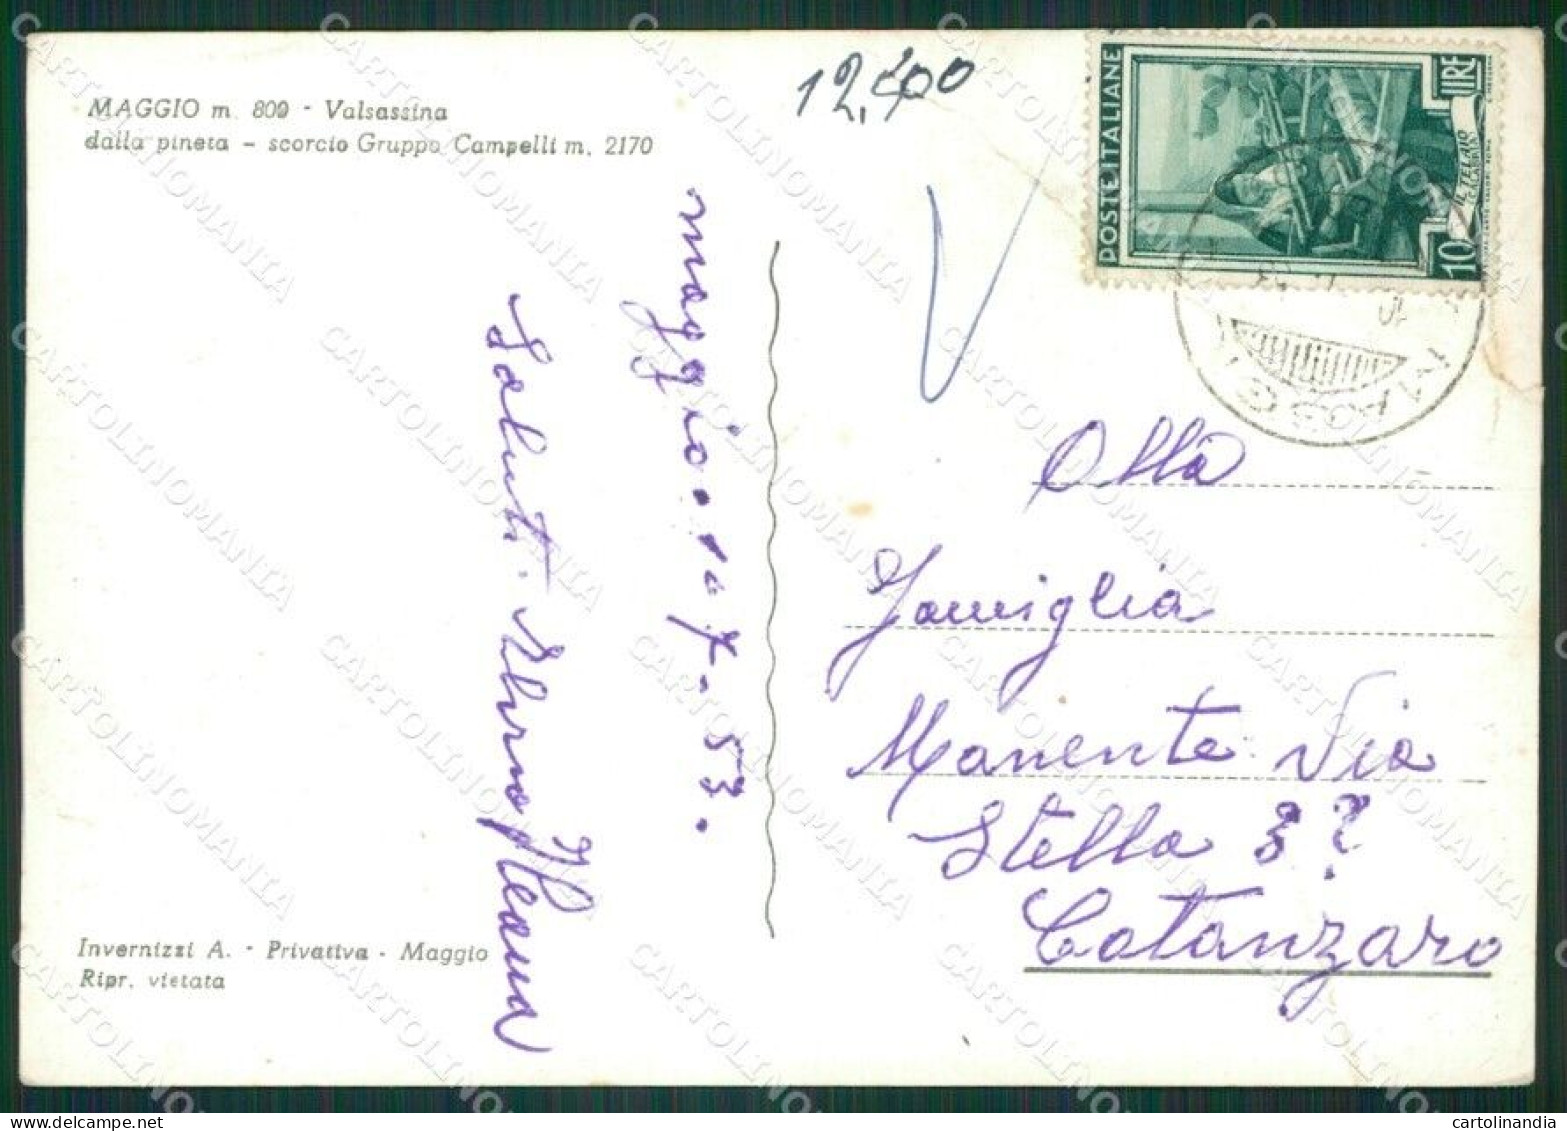 MAGGIO m. 800 - Valsassina
dalla pineta - scorcio Gruppo Campelli m. 2170
12,400
POSTE ITALIANE
LIRE
10
IL TELAIO
CALABRIA
MAGGIO
maggio. 10 7-53.
Saluti.
Ileana
Alla
Famiglia
Manente Via
Stella 3?
Catanzaro
Invernizzi A. - Privativa - Maggio
Ripr. vietata
CARTOLINOMANIA
cartolinandia